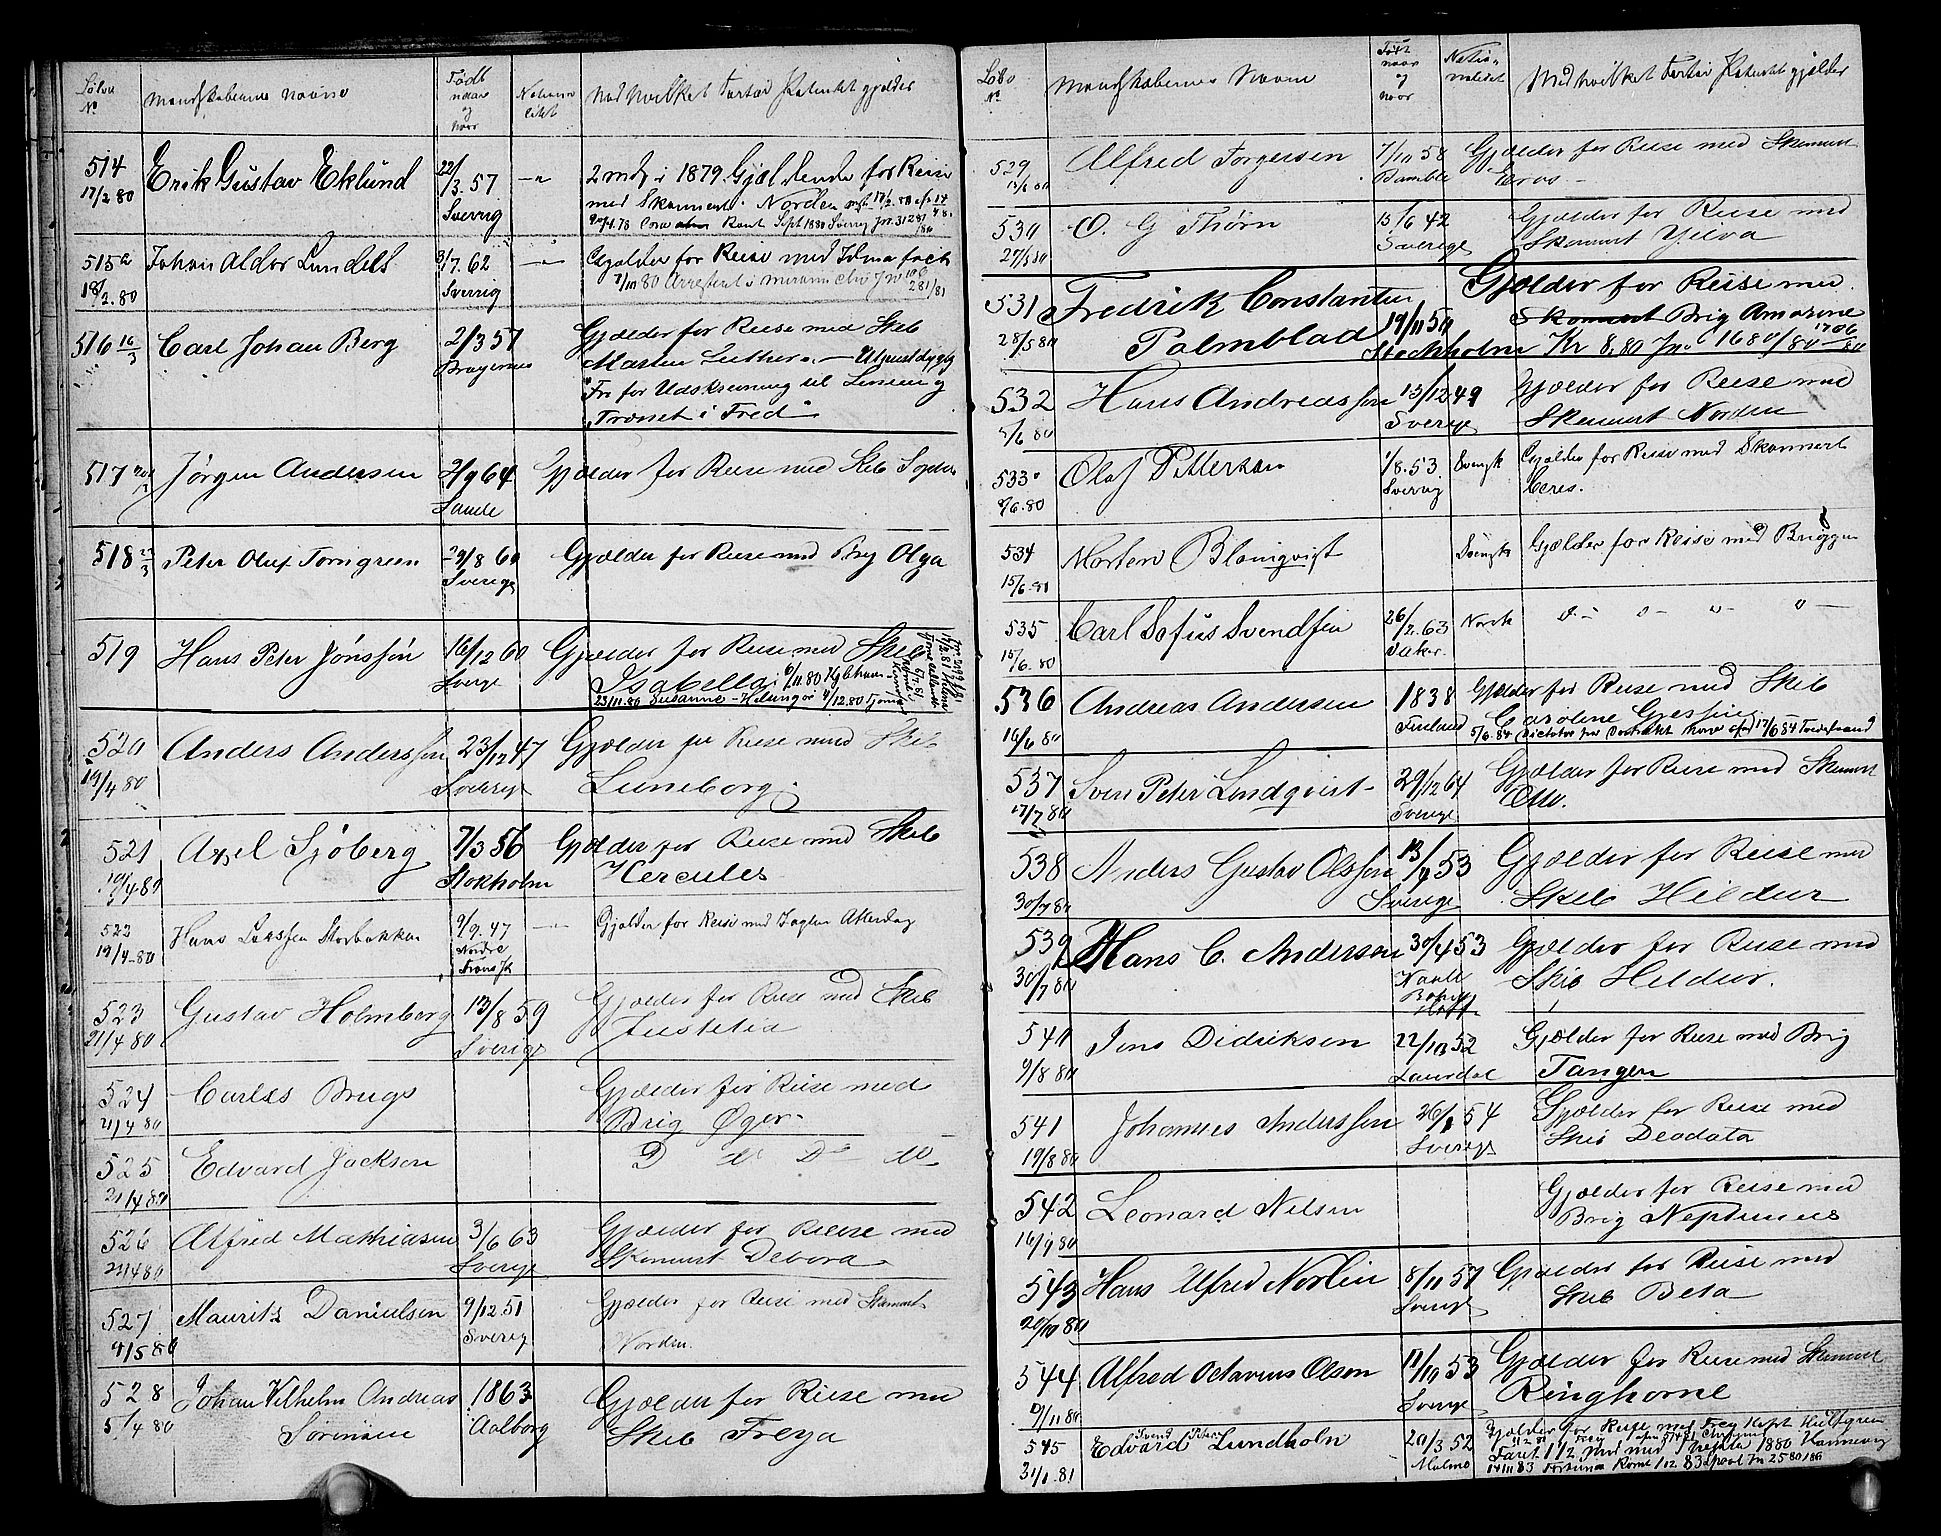 Løbe № Mandskabernes Navne Født naar og hvor Nationalitet Med hvilket Fartøi Patentet gjælder
514 17/2 80 Erik Gustav Eklund 22/3.57 Sverig —"— 2 mdr i 1879. Gjældende for Reise
med Skonnert Norden
515 18/2.80 Johan Aldor Lundels 3/7.62 Sverig —"— Gjælder for Reise med
516 16/3 Carl Johan Berg 2/3 57 Bragernes Gjælder for Reise med Skib
Martin Luther
Fri for Udskrivning til Linien og
Tronet i Fred
517 Jørgen Andersen 2/9 64 Sande Gjælder for Reise med Skib
518 Peter Oluf Torngreen 29/8 60 Sverige Gjælder for Reise med Brig Olga
519 Hans Peter Jønssøn 16/12 60 Sverge Gjælder for Reise med Skib
Isabella 6/11.80 Kjbhavn
23/11.80 Susanne - Helsingør 4/12.80
520 19/4 80 Anders Anderssøn 23/12 47 Sverige Gjælder for Reise med Skib
Luneborg
521 19/4.80 Axel Sjöberg 7/3 56 Stokholm Gjælder for Reise med Skib
Hercules
522 19/4-80 Hans Larssen Storbakken 9/9.47 Nordre —"— Gjælder for Reise med Jagten Akerdag
523 21/4 80 Gustav Holmberg 13/8 59 Sverige Gjælder for Reise med Skib
Justetia
524 21/4 80 Carles Brugs Gjælder for Reise med
Brig Øger
525 21/4 80 Edvard Jackson D do Do do
526 21/4 80 Alfred Mathiasen 3/6 63 Sverige Gjælder for Reise med
Skonnert Debora
527 4/5 80 Mauritz Danielsen 9/12.51 Sverig Gjælder for Reise med Skonnert
Norden.
528 5/4 80 Johan Vilhelm Andreas
Sørensen 1863 Aalborg Gjælder for Reise med
Skib Freya
Løbe № Mandskabernes Navne Født naar og hvor Nationalitet Med hvilket Fartøi Patentet gjælder
529 Alfred Torgersen 7/10 58 Bamble Gjælder for Reise med Skonnert
Eros
530 27/5 80 O. G Thørn 15/6 42 Sverige Gjælder for Reise med
Skonnert Ydva
531 28/5 80 Fredrik Constantin
Palmblad 19/11 54 Stockholm Gjælder for Reise med
Skonnert Brig Amazone
Kr 8.80 Jno 1680/80
532 5/6 80 Hans Andreassen 13/12 49 Sverige Gjælder for Reise med
Skonnert Norden
533 9/6.80 Olof Pitterson 1/8.53 Sverrig Svensk Gjælder for Reise med Skonnert
Ceres.
534 15/6.80 Morten Blomqvist Svensk Gjælder for Reise med Briggen
535 15/6.80 Carl Sofus Svendsen 26/2.63 Norsk "— "— "— "—
536 16/6 80 Andreas Andersen 1838 Finland Gjælder for Reise med Skib
Caroline
5/6.84 17/6 84
537 17/7 80 Sven Peter Lindqvist 29/12 64 Sverige Gjælder for Reise med Skonnert
Otto.
538 30/7 80 Anders Gustav Olssøn 13/4 53 Sverige Gjælder for Reise med
Skib Hildur
539 30/7 80 Hans C. Anderson 30/4 53 Gjælder for Reise med
Skib Heldur.
540 9/8 80 Jens Didriksen 22/10 52 Laurdal Gjælder for Reise med Brig
Tangen
541 19/8 80 Johannes Anderssøn 26/1 54 Sverige Gjælder for Reise med
Skib Deodata
542 16/9 80 Leonard Nilsen Gjælder for Reise med
Brig Neptunus
543 20/10 80 Hans Alfred Norlin 8/11 57 Sverige Gjælder for Reise med
Skib Beta
544 19/11 80 Alfred Octavius Olson 11/10 53 Sverige Gjælder for Reise med Skonnert
Ringhorne
545 31/1.81 Edvard Svend Peter Lundholm 20/3 52 Malmo Gjælder for Reise med Frey Kapt Hultgreen
Faret 1 1/2 Mnd med 1880
14/11 83 Fortuna